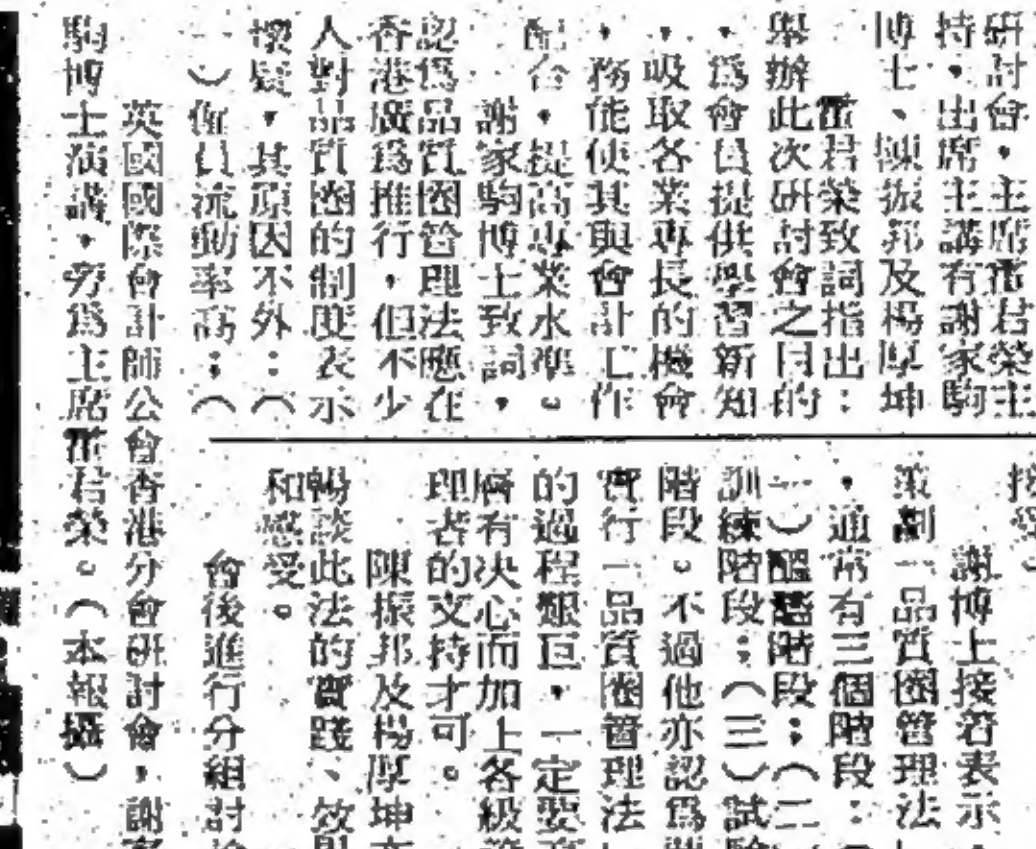 研討會，主席霍君榮主
持，出席主講有謝家駒
博士、陳振邦及楊厚坤
霍君榮致詞指出：
舉辦此次研討會之目的
，爲會員提供學習新知
，吸取各業專長的機會
，務能使其與會計工作
配合，提高專業水準。
謝家駒博士致詞，
認爲品質圈管理法應在
香港廣爲推行，但不少
人對品質圈的制度表示
懷疑，其原因不外：（
一）僱員流動率高；（
謝博士接着表示
策劃一品質圈管理法
，通常有三個階段：
一）醞釀階段；（二
訓練階段；（三）試驗
階段。不過他亦認爲
實行一品質圈管理法
的過程艱巨，一定要
層有決心而加上各級
理者的支持才可。
陳振邦及楊厚坤亦
暢談此法的實踐、效果
和感受。
會後進行分組討
英國國際會計師公會香港分會研討會，謝家
駒博士演講，旁爲主席霍君榮。（本報攝）